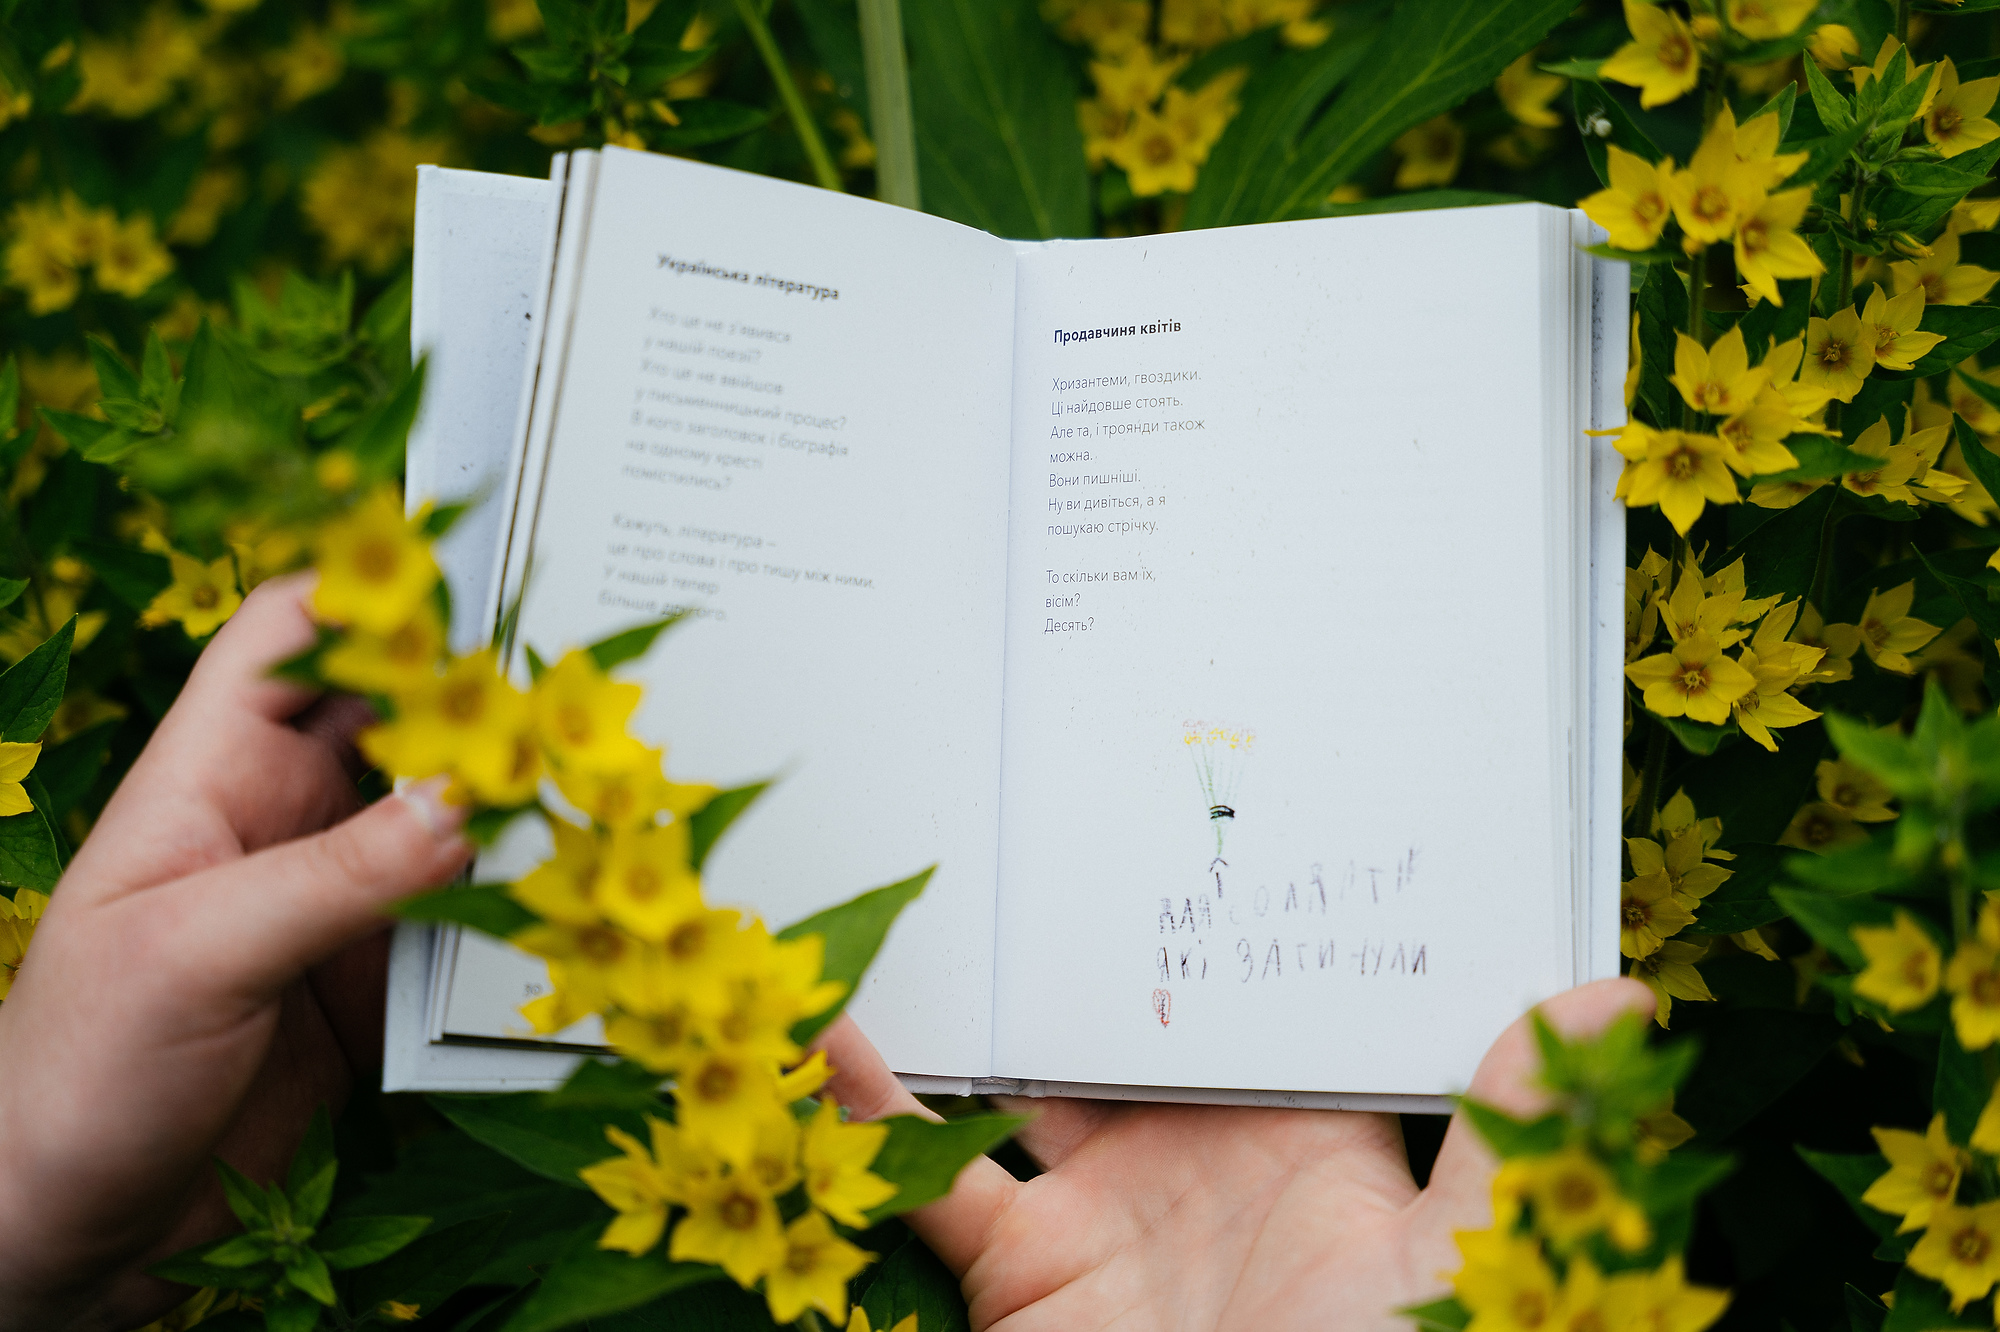 Українська література
Хто ще не з'явився
у нашій поезії?
Хто ще не ввійшов
у письменницький процес?
В кого заголовок і біографія
на одному хресті
помістились?
Кажуть, література –
це про слова і про тишу між ними.
У нашій тепер
більше другого.
30
Продавчиня квітів
Хризантеми, гвоздики.
Ці найдовше стоять.
Але та, і троянди також
можна.
Вони пишніші.
Ну ви дивіться, а я
пошукаю стрічку.
То скільки вам їх,
вісім?
Десять?
ДЛЯ СОЛДАТІВ
ЯКІ ЗАГИНУЛИ